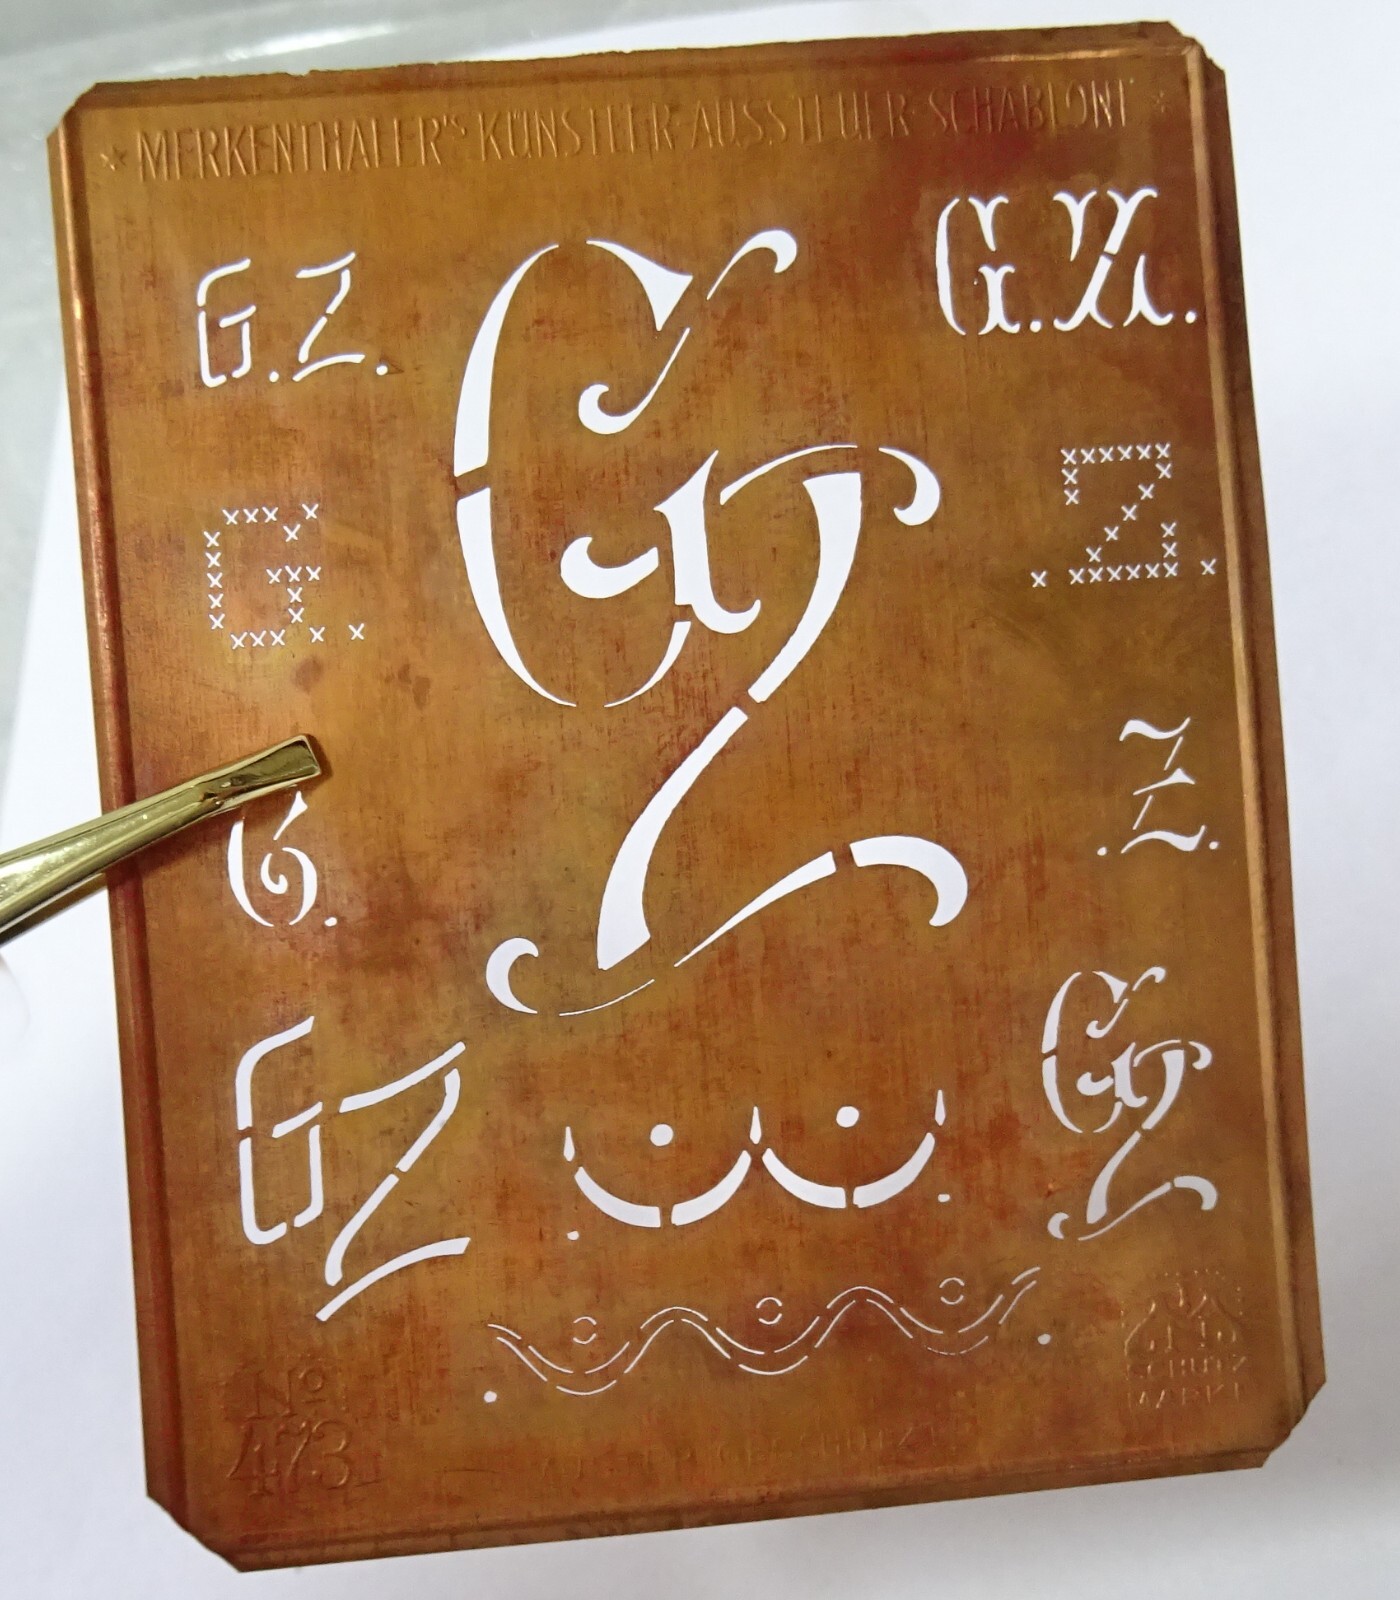 * MERKENTHALER'S KÜNSTLER-AUSSTEUER-SCHABLONE *
G.Z.
G.Z.
GZ
G.
.Z.
G.
.Z.
GZ
GZ
No
473
SCHUTZ
MARKE